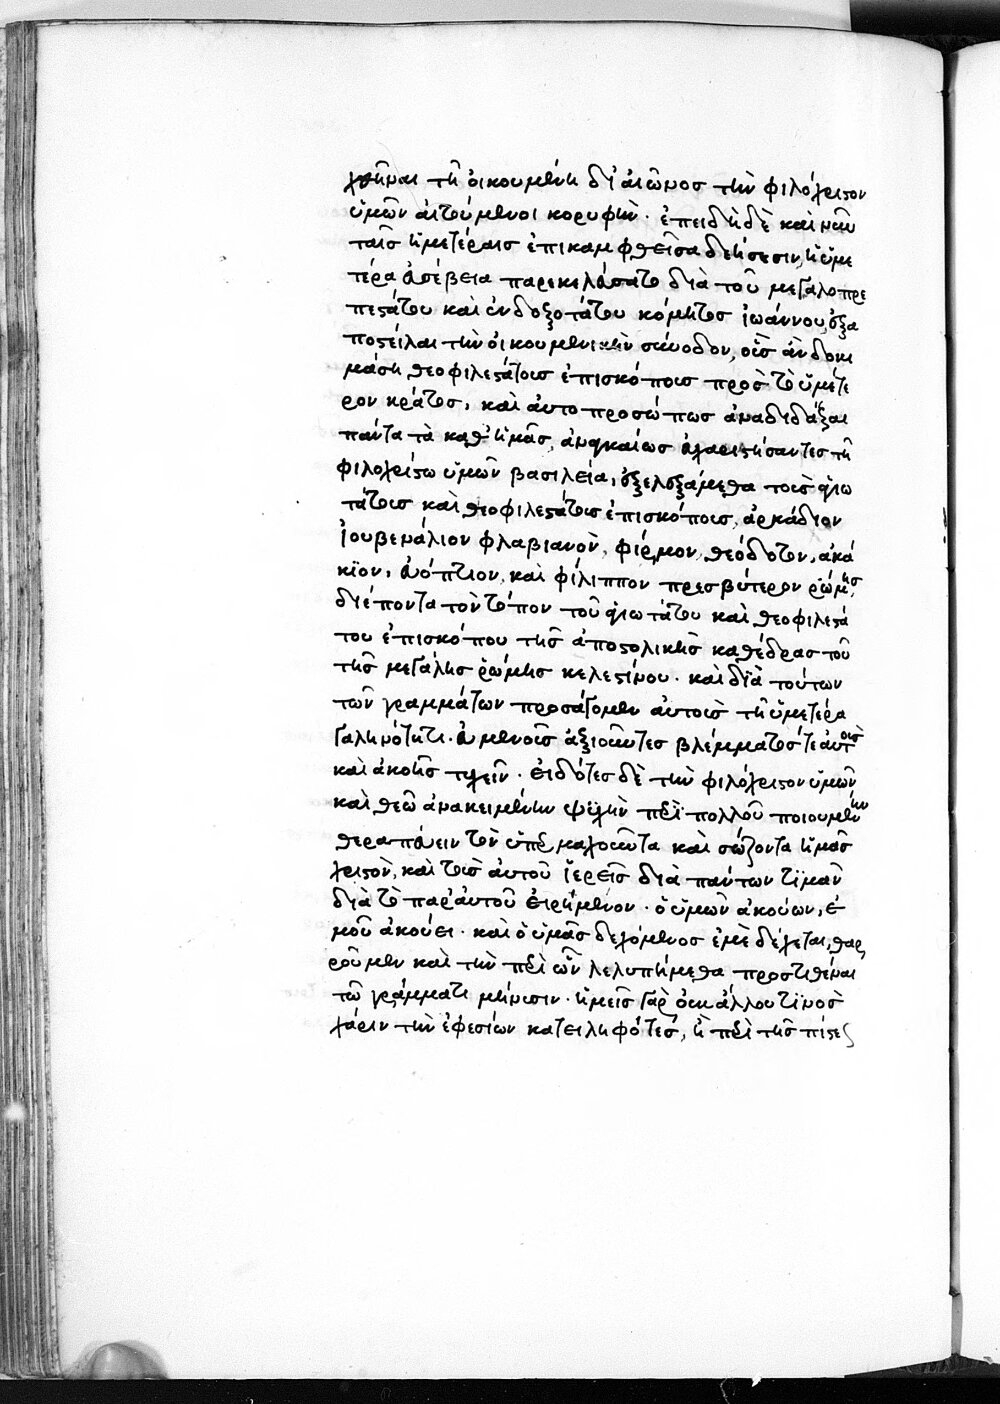 χθῆναι τῆ οἰκουμένη δι' αἰῶνος τὴν φιλόχριστον
ὑμῶν αἰτούμενοι κορυφήν· ἐπειδὴ δὲ καὶ νῦν
ταῖς ἡμετέραις ἐπικαμφθεῖσα δεήσεσιν, ἡ ὑμε
τέρα εὐσέβεια παρεκελεύσατο διὰ τοῦ μεγαλοπρε
πεστάτου καὶ ἐνδοξοτάτου κόμητος ἰωάννου, ἐξα
ποστεῖλαι τὴν οἰκουμενικὴν σύνοδον, οὓς ἂν δοκι
μάση θεοφιλεστάτους ἐπισκόπους πρὸς τὸ ὑμέτε
ρον κράτος, καὶ αὐτοπροσώπως ἀναδιδάξαι
πάντα τὰ καθ' ἡμᾶς, ἀναγκαίως εὐχαριστήσαντες τῆ
φιλοχρίστω ὑμῶν βασιλεία, ἐξελεξάμεθα τοὺς ἁγιω
τάτους καὶ θεοφιλεστάτους ἐπισκόπους, ἀρκάδιον
ἰουβενάλιον φλαβιανὸν, φίρμον, θεόδοτον, ἀκά
κϊον, εὐόπτιον, καὶ φίλιππον πρεσβύτερον ῥώμης,
διέποντα τὸν τόπον τοῦ ἁγιωτάτου καὶ θεοφιλεστά
του ἐπισκόπου τῆς ἀποστολικῆς καθέδρας τοῦ
τῆς μεγάλης ῥώμης κελεστίνου· καὶ διὰ τούτων
τῶν γραμμάτων προσάγομεν αὐτοὺς τῆ ὑμετέρα
γαληνότητι· εὐμενοῦς ἀξιοῦντες βλέμματός τε αὐτοὺς
καὶ ἀκοῆς τυχεῖν· εἰδότες δὲ τὴν φιλόχριστον ὑμῶν
καὶ θεῶ ἀνακειμένην ψυχὴν περὶ πολλοῦ ποιουμένην
θεραπεύειν τὸν ὑπερμαχοῦντα καὶ σώζοντα ἡμᾶς
χριστὸν, καὶ τοὺς αὐτοῦ ἱερεῖς διὰ πάντων τϊμᾶν
διὰ τὸ παρ' αὐτοῦ εἰρημένον· ὁ ὑμῶν ἀκούων, ἐ
μοῦ ἀκούει· καὶ ὁ ὑμᾶς δεχόμενος ἐμὲ δέχεται, θαρ
ροῦμεν καὶ τὴν περὶ ὧν λελυπήμεθα προστιθέναι
τῶ γράμματι μήνυσιν· ἡμεῖς γὰρ οὐκ ἄλλου τϊνὸς
χάριν τὴν ἐφεσίων κατειληφότες, ἢ περὶ τῆς πίστεως